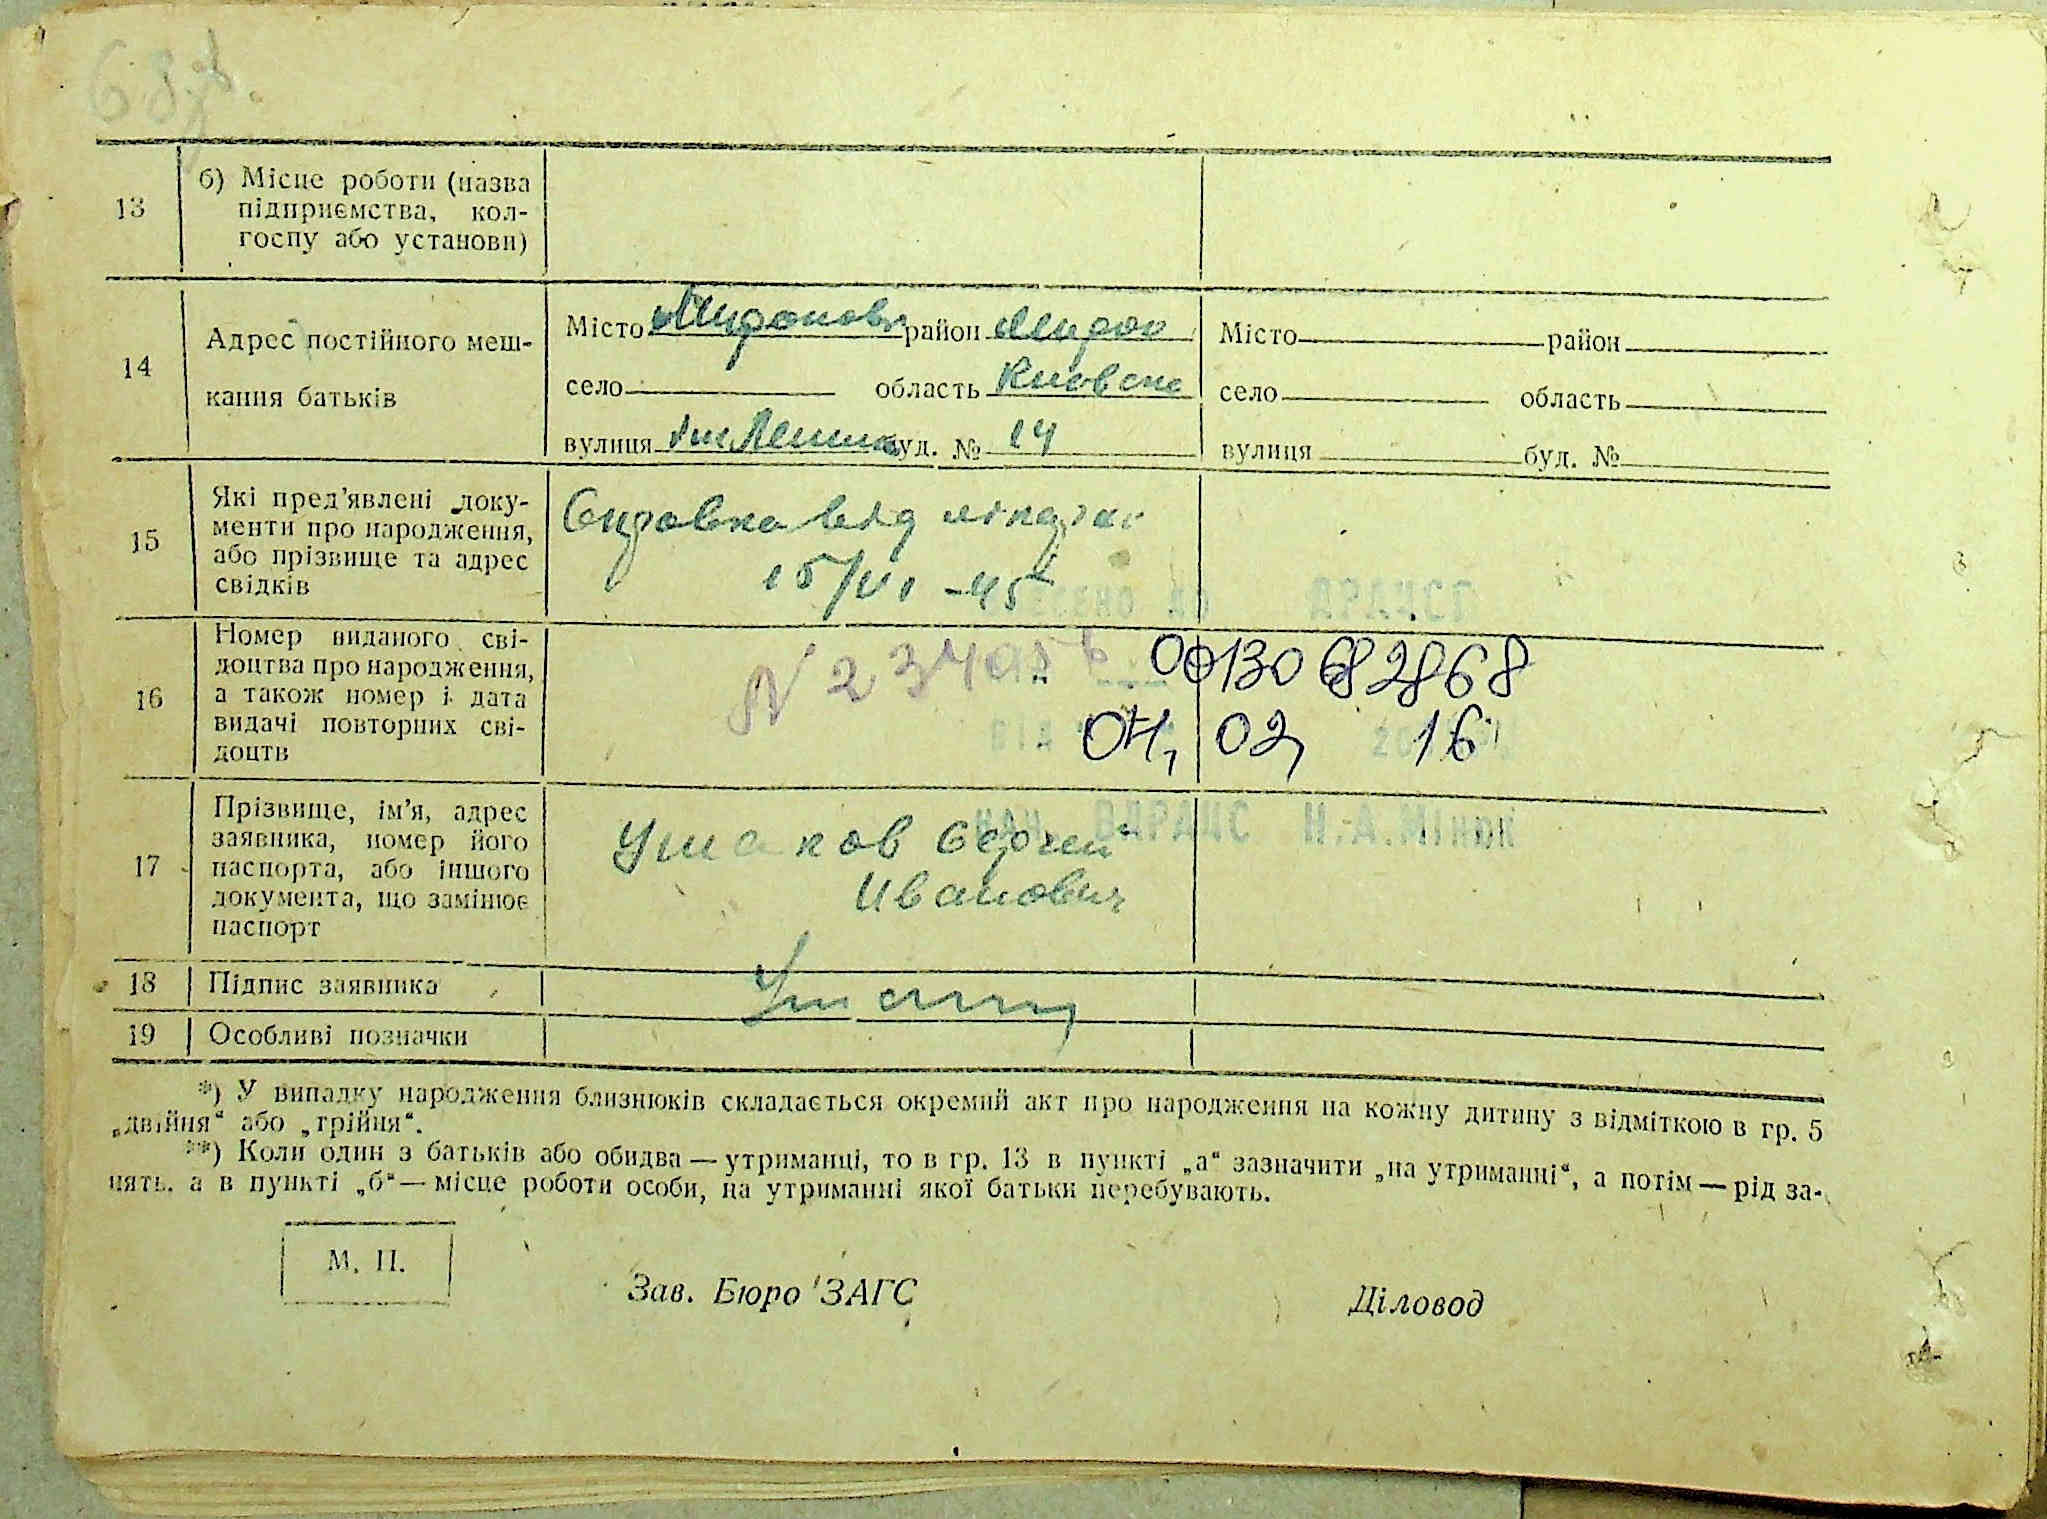 13
б) Місце роботи (назва
підприємства, кол-
госпу або установи)
14
Адрес постійного меш-
кання батьків
Місто Миронов район Мирон
село область Киевска
вулиця ім Леніна буд. № 14
Місто район
село область
вулиця буд. №
15
Які пред’явлені доку-
менти про народження,
або прізвище та адрес
свідків
Справка від лікарні
15/VI -45
16
Номер виданого сві-
доцтва про народження,
а також номер і дата
видачі повторних сві-
доцтв
N 234056
ВНЕСЕНО ДО ДРАЦСГ
00130682868
від 04, 02, 20 16
НАЧ. ВДРАЦС Н.А.Мінок
17
Прізвище, ім’я, адрес
заявника, номер його
паспорта, або іншого
документа, що замінює
паспорт
Ушаков Сергей
Иванович
18
Підпис заявника
19
Особливі позначки
*) У випадку народження близнюків складається окремий акт про народження на кожну дитину з відміткою в гр. 5
„двійня“ або „трійня“.
**) Коли один з батьків або обидва — утриманці, то в гр. 13 в пункті „а“ зазначити „на утриманні“, а потім — рід за-
нять. а в пункті „б“ — місце роботи особи, на утриманні якої батьки перебувають.
М. П.
Зав. Бюро ЗАГС
Діловод